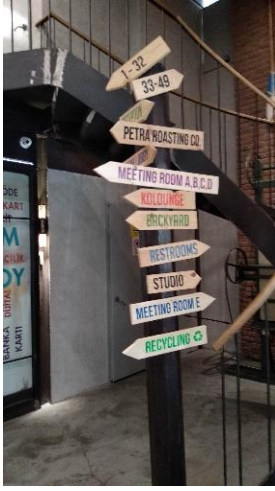 1-32
33-49
PETRA ROASTING CO.
MEETING ROOM A,B,C,D
KOLOUNGE
BACKYARD
RESTROOMS
STUDIO
MEETING ROOM E
RECYCLING
ÖDE
KART
CILIK
OY
BANKA
KARTI
DİJİTAL